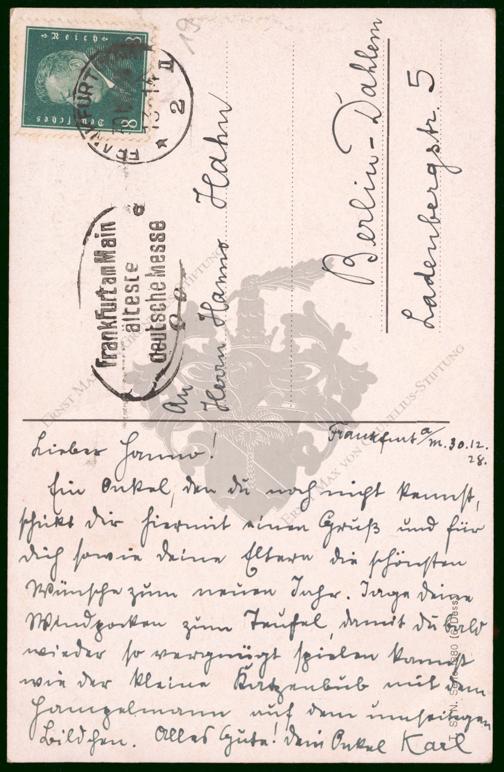 Deutsches Reich
8
FRANKFURT
2 II
Frankfurt am Main
älteste
deutsche Messe
An
Herrn Hanno Hahn
Berlin-Dahlem
Ladenbergstr. 5
ERNST MAX VON GRUNELIUS-STIFTUNG
Frankfurt a/M. 30.12.
28.
Lieber Hanno!
Ein Onkel, den du noch nicht kennst,
schickt dir hiermit einen Gruß und für
dich sowie deine Eltern die schönsten
Wünsche zum neuen Jahr. Jage deine
Windpocken zum Teufel, damit du bald
wieder so vergnügt spielen kannst
wie der kleine Katzenbub mit dem
Hampelmann auf dem umseitigen
Bildchen. Alles Gute! Dein Onkel Karl